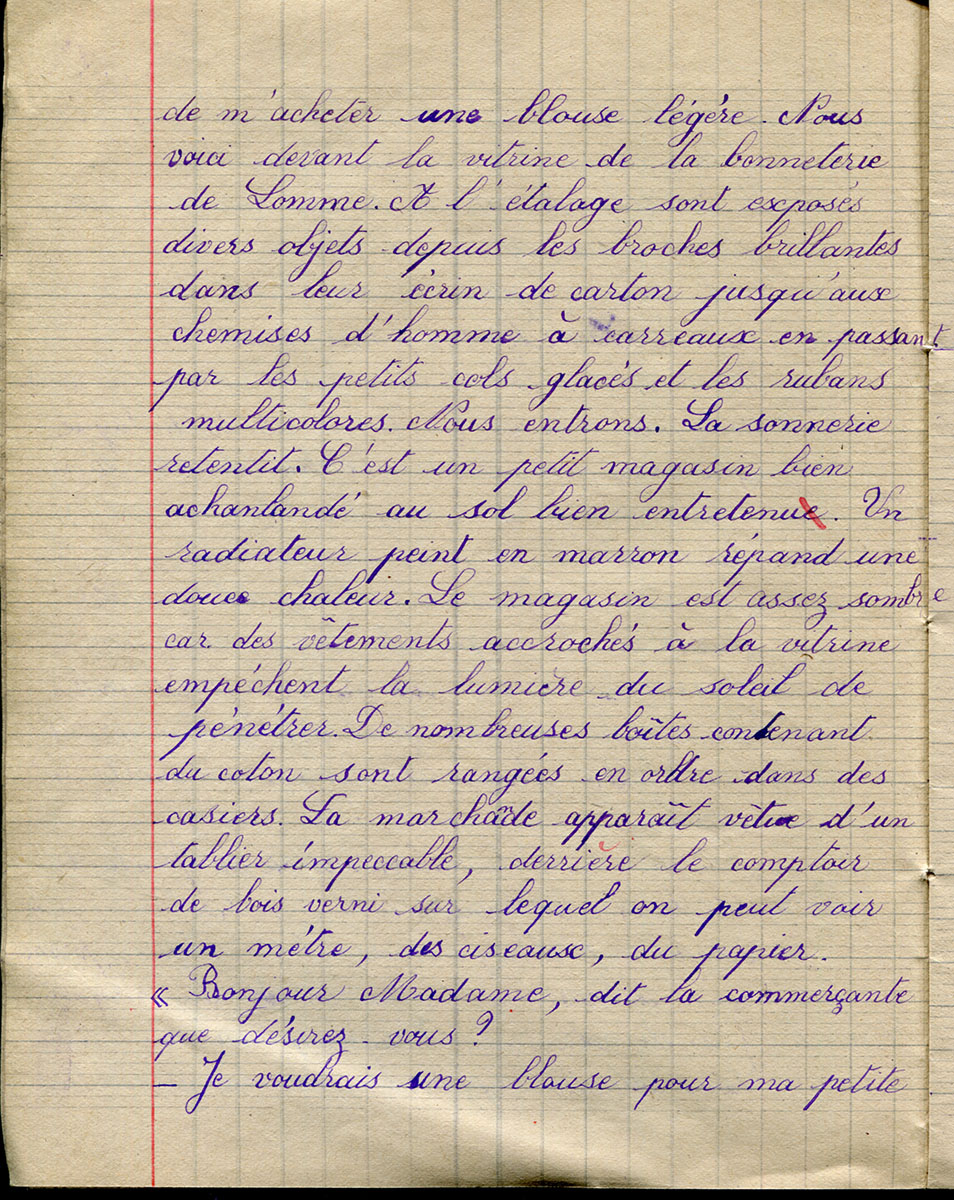 de m'acheter une blouse légère. Nous
voici devant la vitrine de la bonneterie
de Lomme. A l'étalage sont exposés
divers objets depuis les broches brillantes
dans leur écrin de carton jusqu'aux
chemises d'homme à carreaux en passant
par les petits cols glacés et les rubans
multicolores. Nous entrons. La sonnerie
retentit. C'est un petit magasin bien
achanlandé au sol bien entretenue. Un
radiateur peint en marron répand une
douce chaleur. Le magasin est assez sombre
car des vêtements accrochés à la vitrine
empéchent la lumière du soleil de
pénétrer. De nombreuses boîtes contenant
du coton sont rangées en ordre dans des
casiers. La marchande apparaît vêtue d'un
tablier impeccable, derrière le comptoir
de bois verni sur lequel on peut voir
un métre, des ciseaux, du papier.
« Bonjour Madame, dit la commerçante
que désirez-vous ?
– Je voudrais une blouse pour ma petite